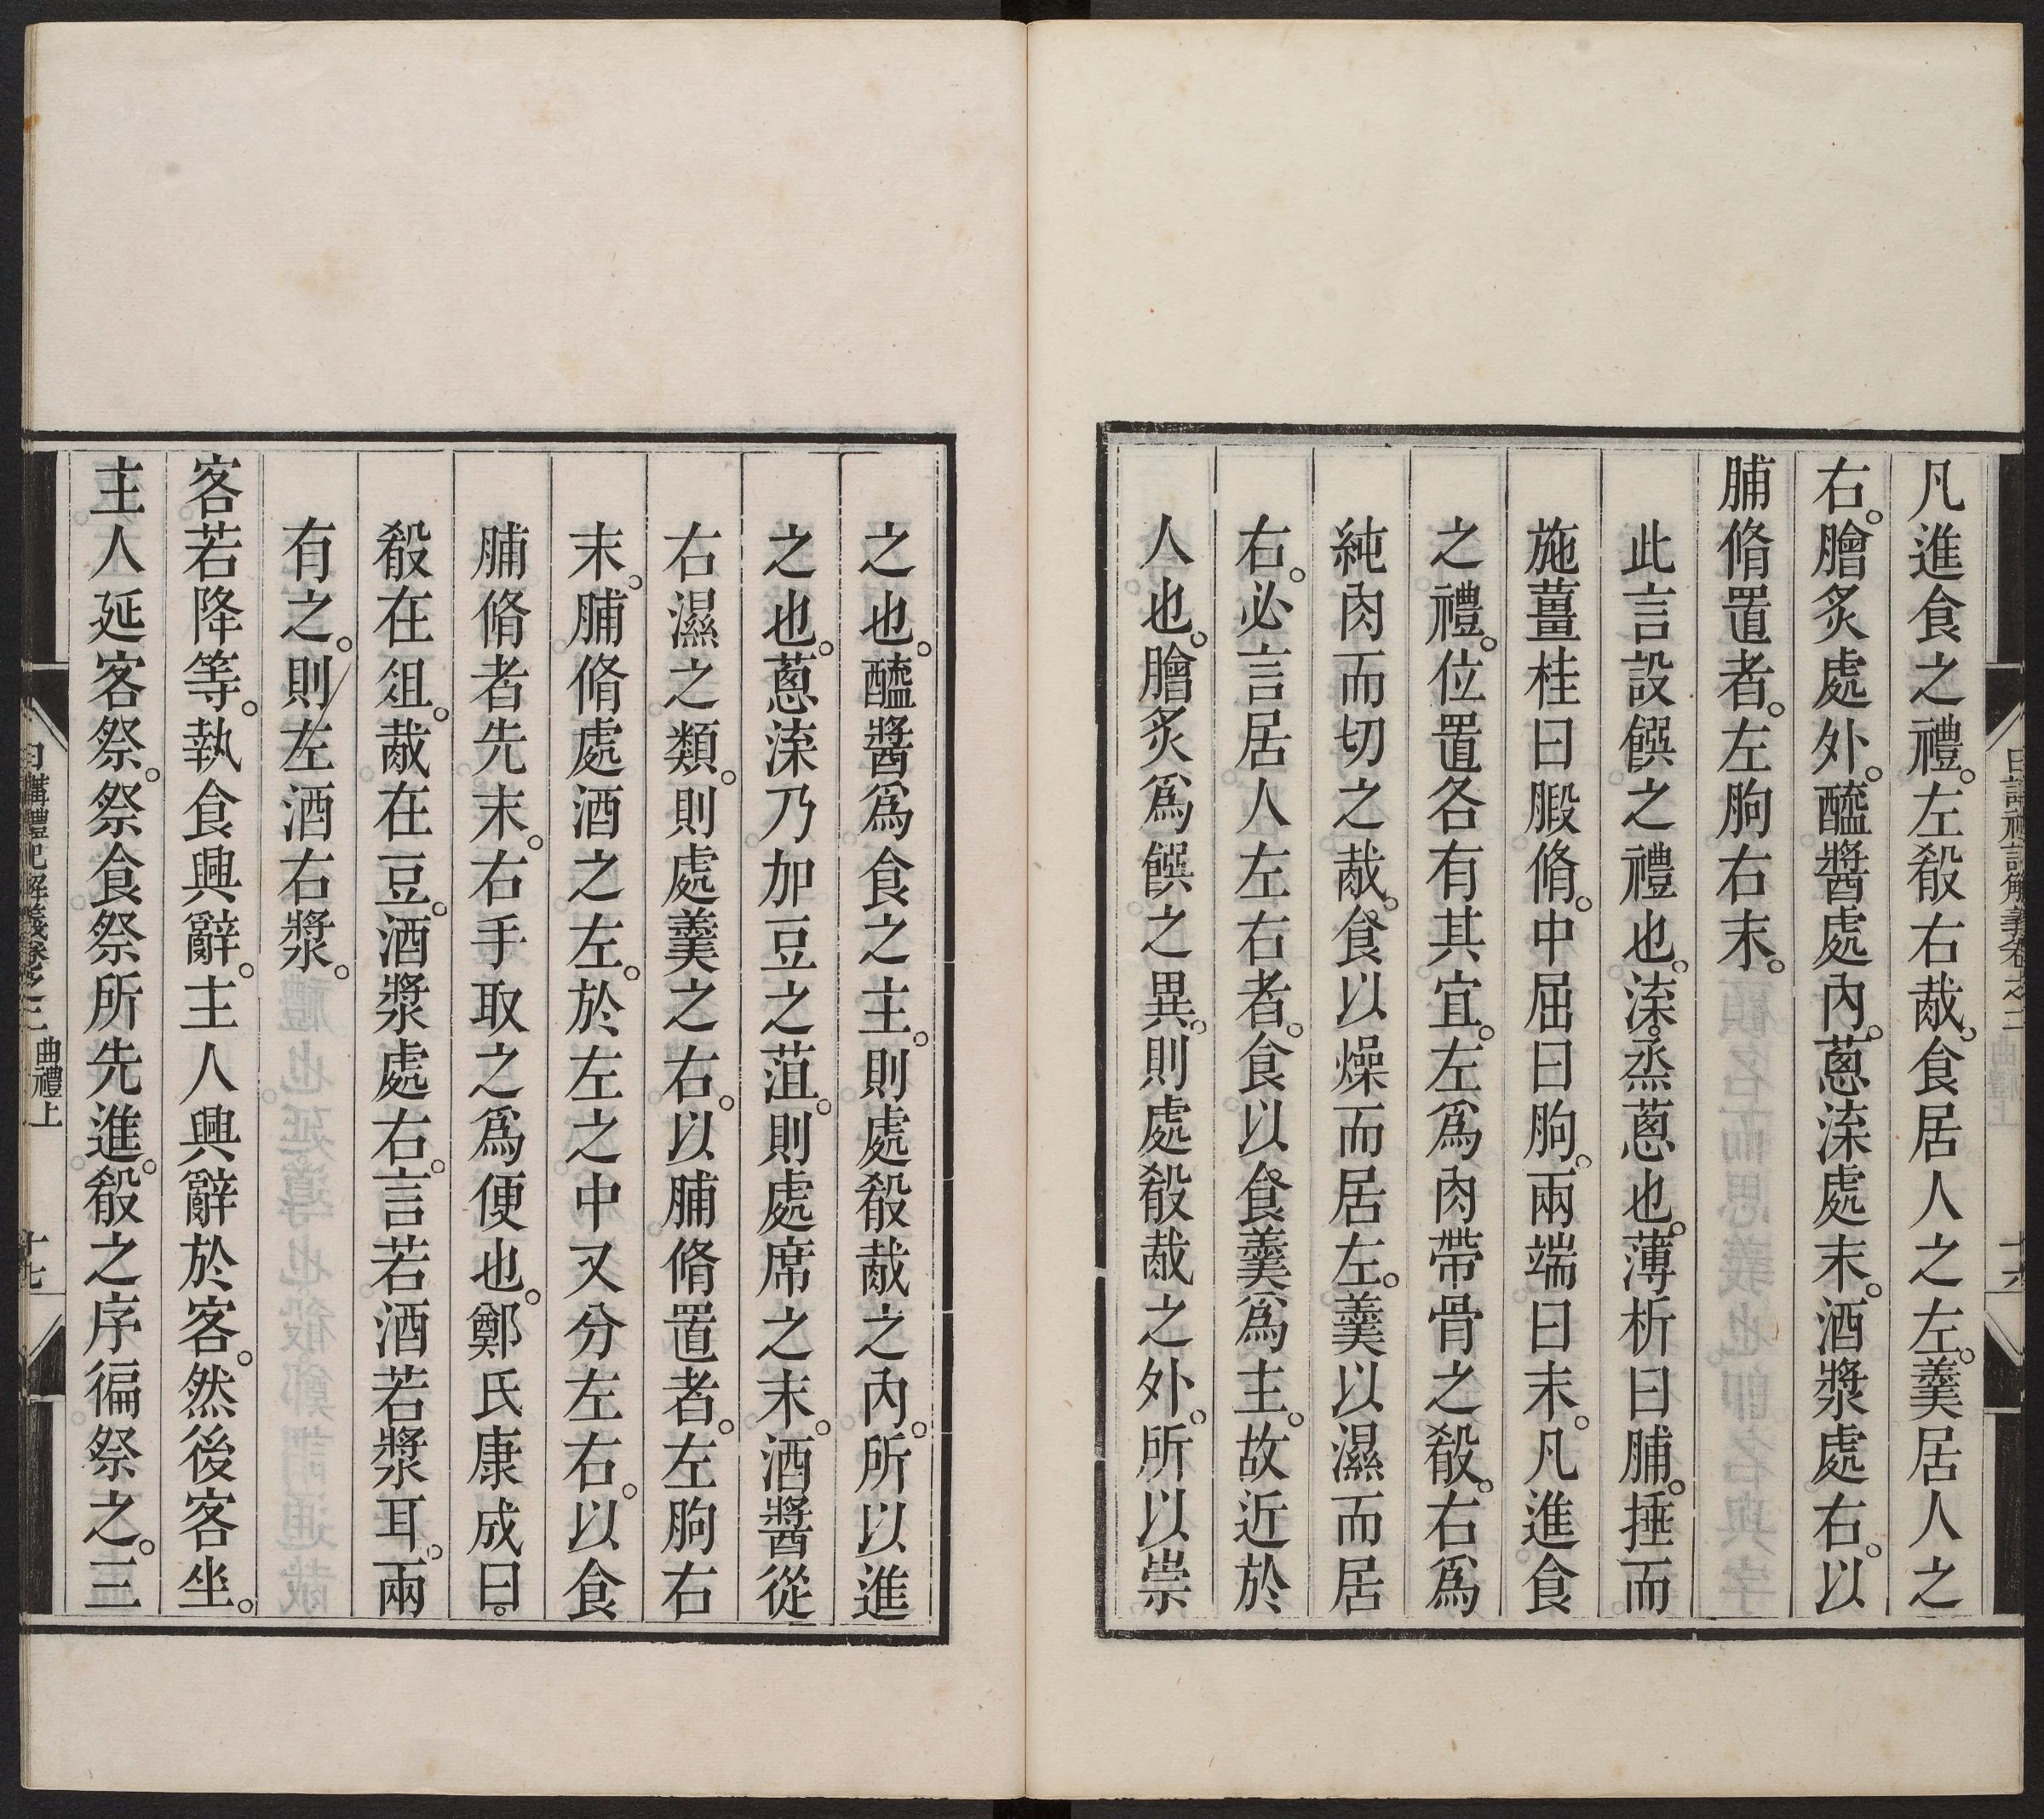 凡進食之禮。左殽右胾。食居人之左。羹居人之
右。膾炙處外。醯醬處內。蔥渿處末。酒漿處右。以
脯脩置者。左朐右末。
此言設饌之禮也。渿。烝蔥也。薄析曰脯。捶而
施薑桂曰腶脩。中屈曰朐。兩端曰末。凡進食
之禮。位置各有其宜。左爲肉帶骨之殽。右爲
純肉而切之胾。食以燥而居左。羹以濕而居
右。必言居人左右者。食以食羹爲主。故近於
人也。膾炙爲饌之異。則處殽胾之外。所以崇
之也。醯醬爲食之主。則處殽胾之內。所以進
之也。蔥渿乃加豆之菹。則處席之末。酒醬從
右濕之類。則處羹之右。以脯脩置者。左朐右
末。脯脩處酒之左。於左之中又分左右。以食
脯脩者先末。右手取之爲便也。鄭氏康成曰。
殽在俎。胾在豆。酒漿處右。言若酒若漿耳。兩
有之。則左酒右漿。
客若降等。執食興辭。主人興辭於客。然後客坐。
主人延客祭。祭食祭所先進。殽之序徧祭之。三
日講禮記解義卷之三 曲禮上 十七